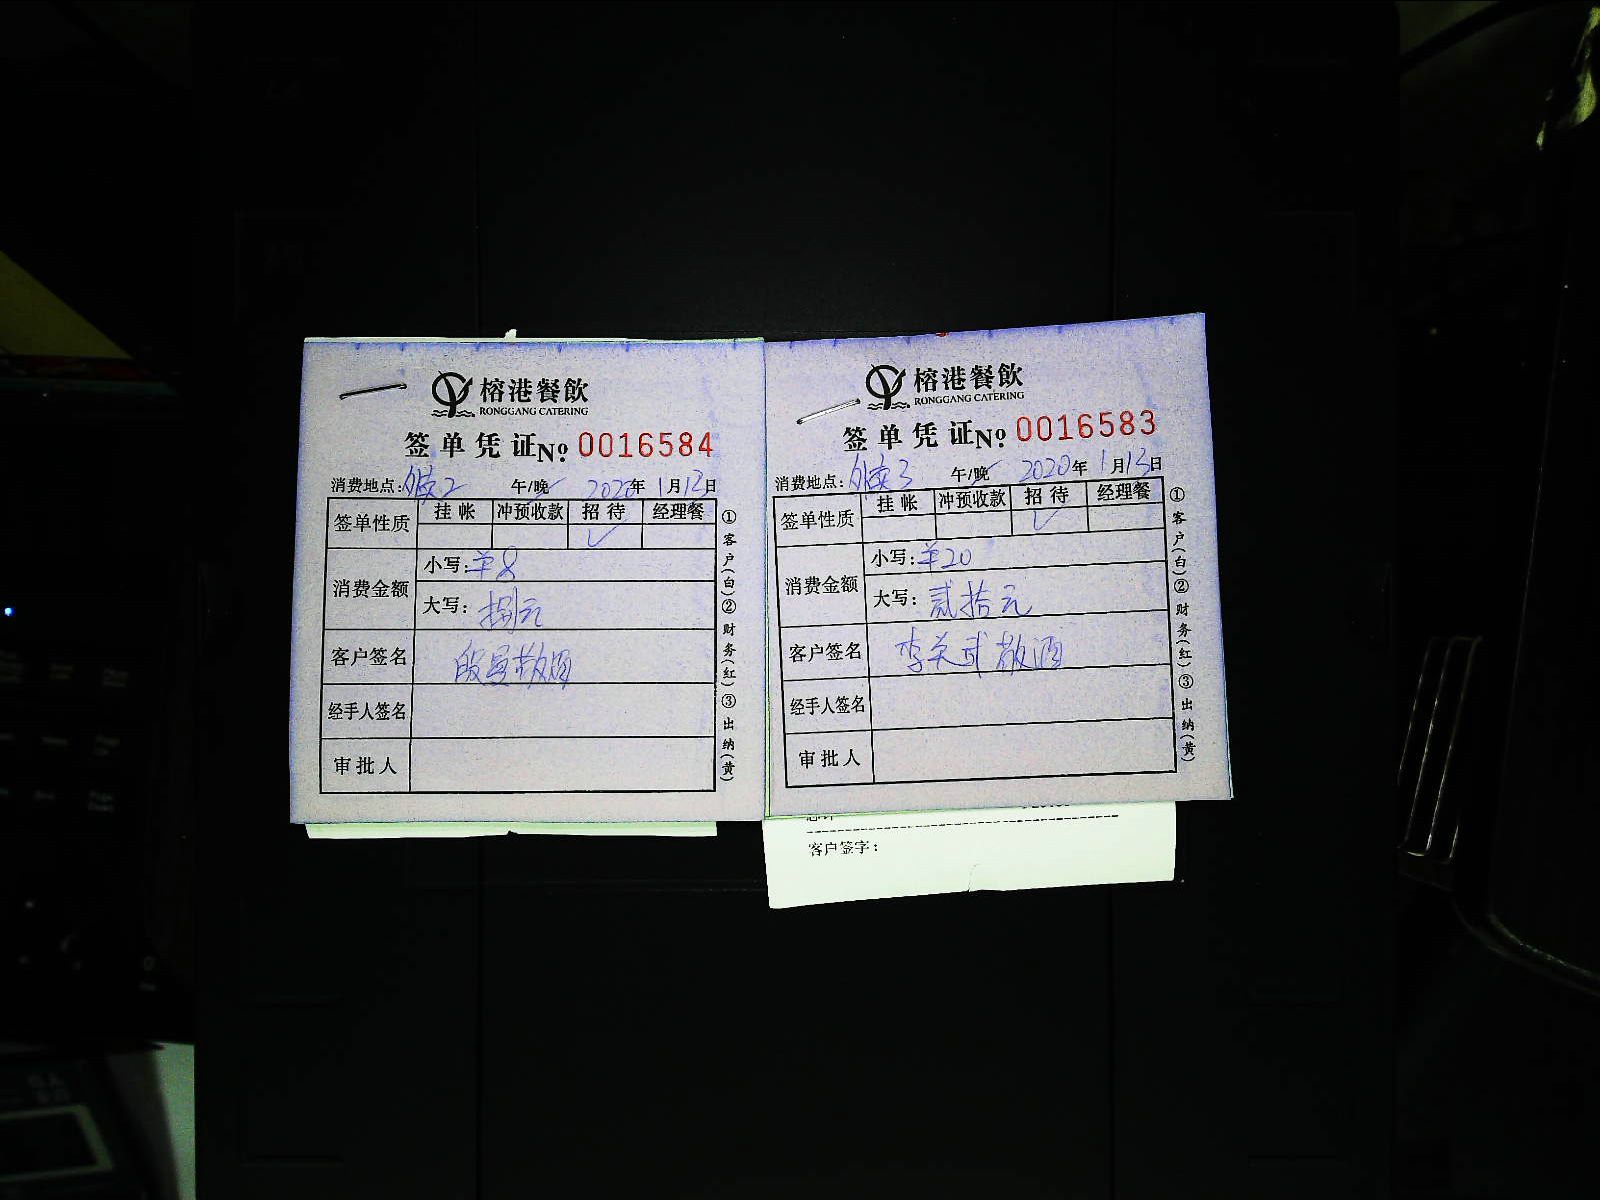 榕港餐飲
RONGGANG CATERING
签单凭证 No 0016584
消费地点:外卖2 午/晚 2020年1月13日
签单性质 挂帐 冲预收款 招待 经理餐
✓
消费金额 小写:¥8
大写:捌元
客户签名
经手人签名
审批人
①客户(白)②财务(红)③出纳(黄)
榕港餐飲
RONGGANG CATERING
签单凭证 No 0016583
消费地点:外卖3 午/晚 2020年1月13日
签单性质 挂帐 冲预收款 招待 经理餐
✓
消费金额 小写:¥20
大写:贰拾元
客户签名 敬酒
经手人签名
审批人
①客户(白)②财务(红)③出纳(黄)
客户签字: